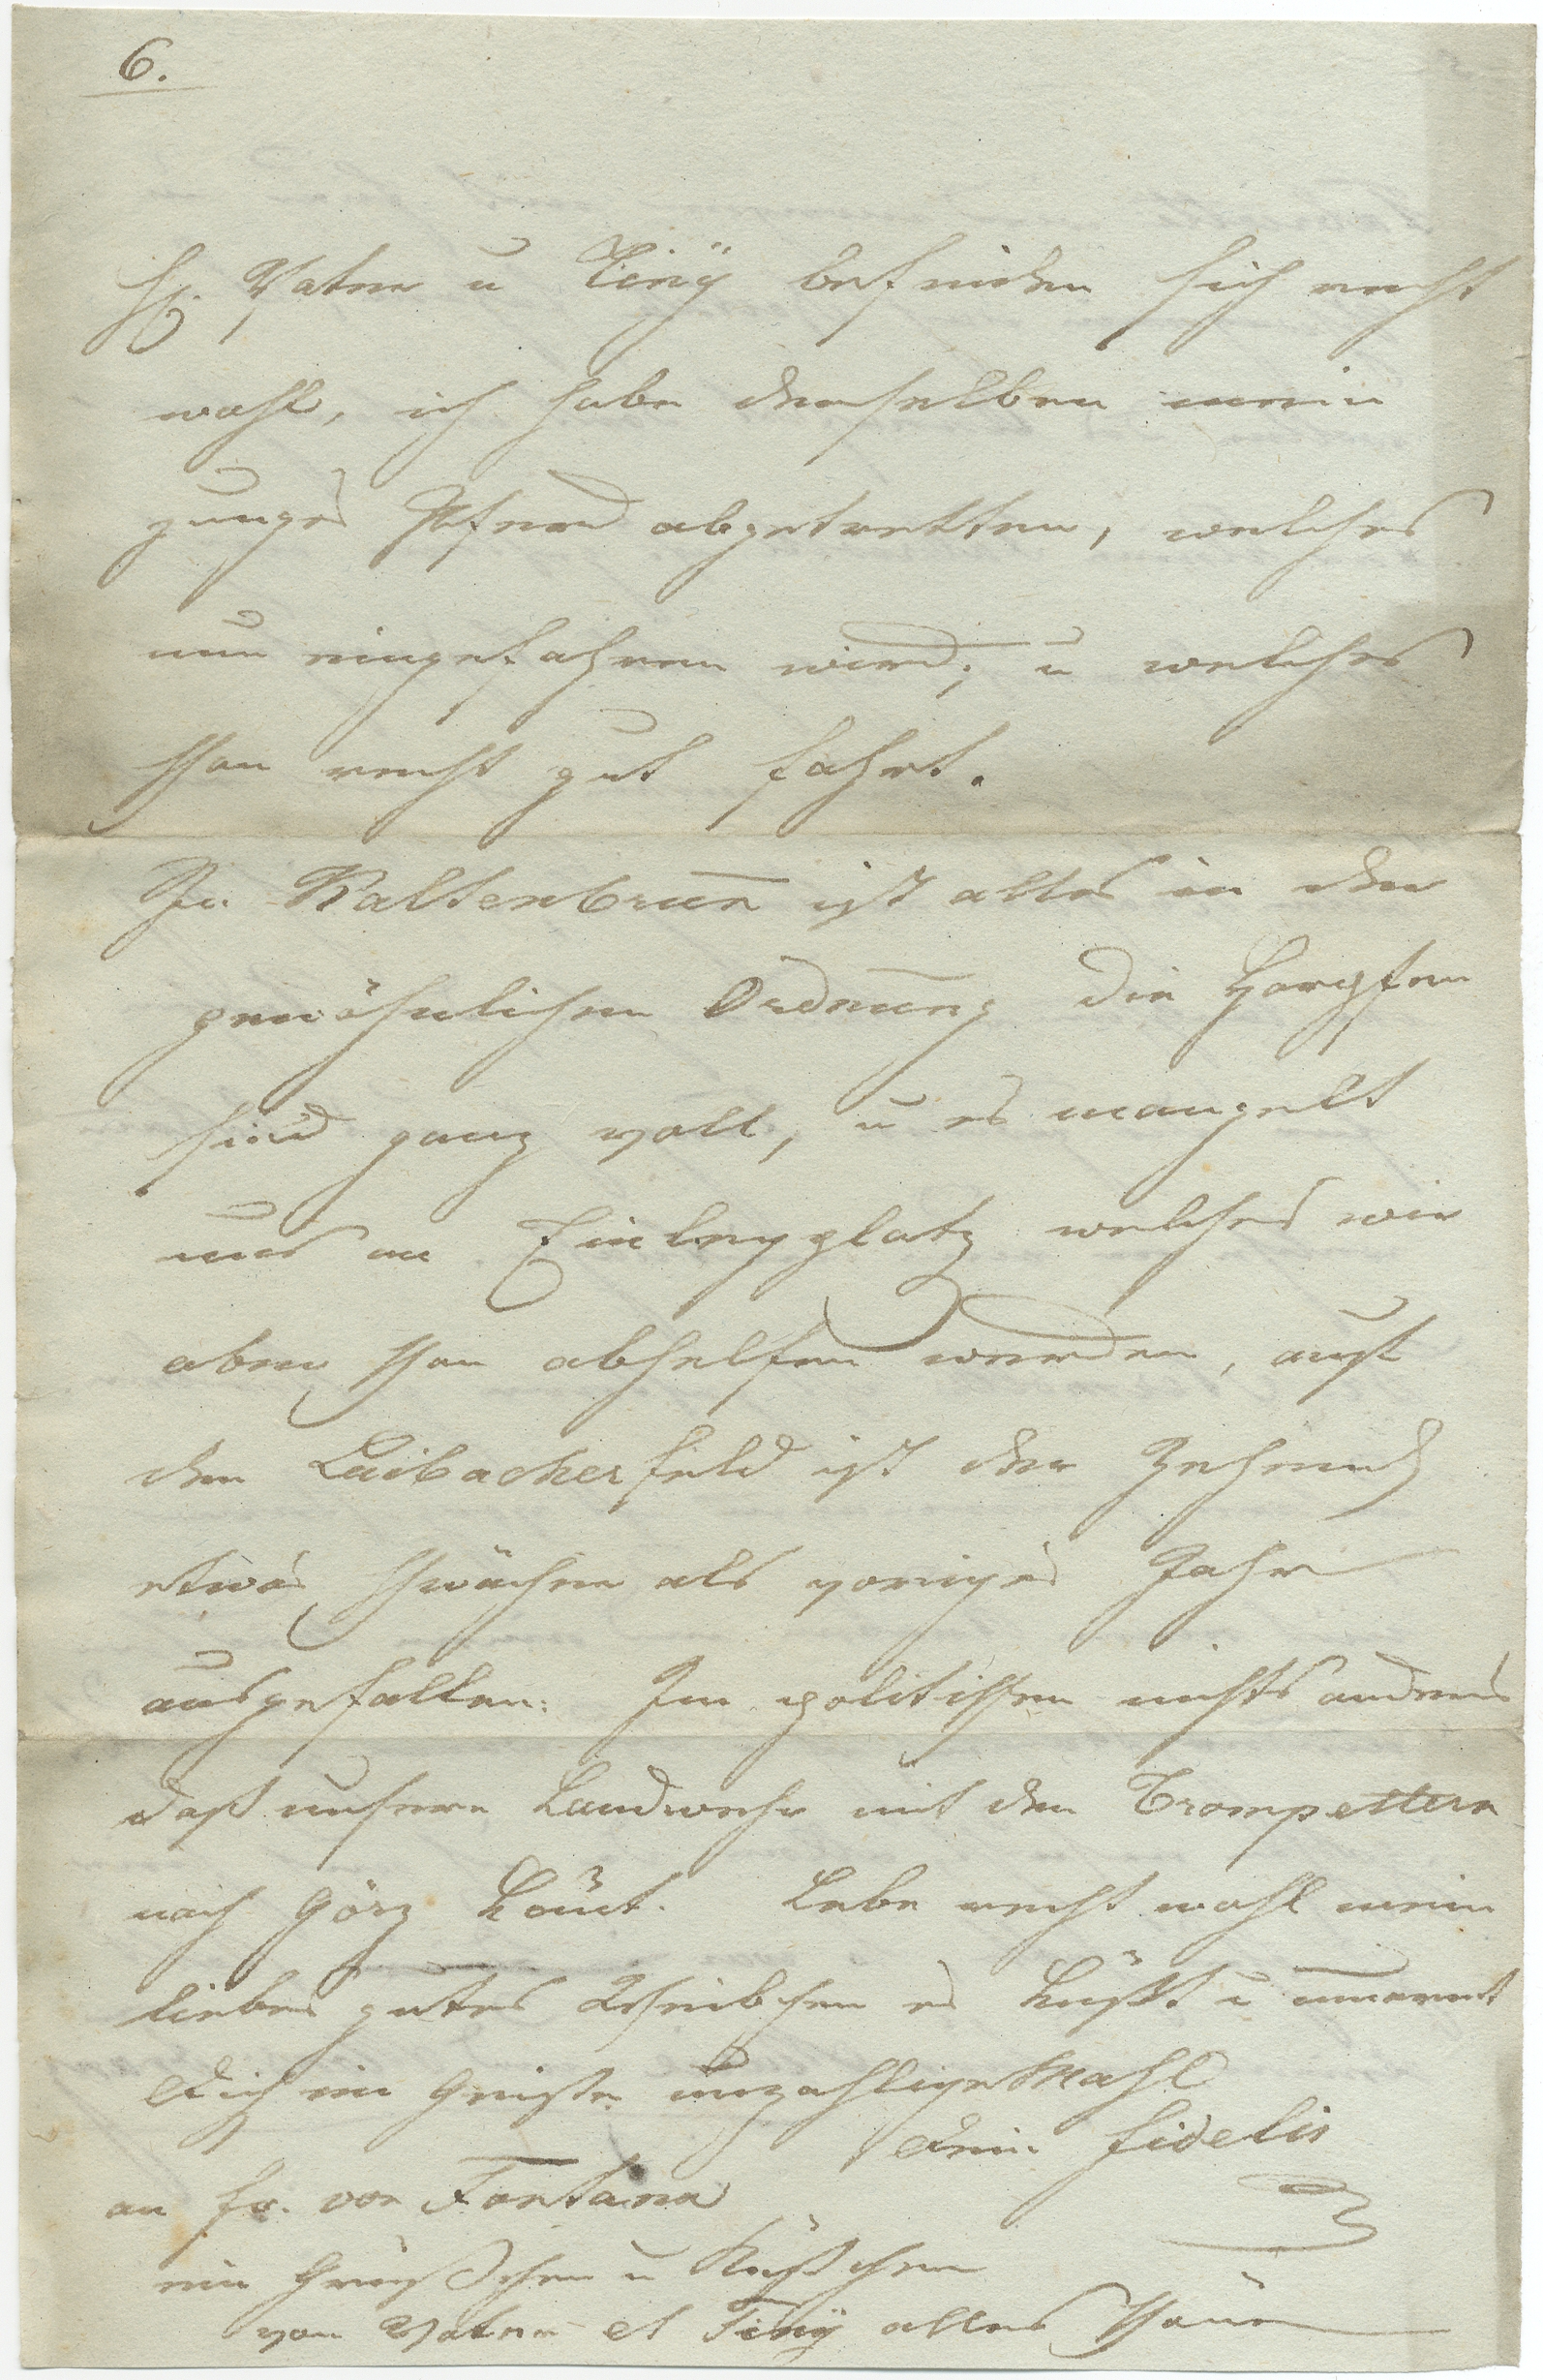 6.
H: Vater u Tinÿ befinden sich recht
wohl, ich habe denselben mein
junges Pferd abgetretten, welches
nun eingefahren wird; u welches
schon recht gut fahrt.
In Kaltenbrun̅ ist alles in der
gewöhnlichen Ordnung die Harpfen
sind ganz voll, u es mangelt
uns an Einlegplatz welches wir
aber schon abhelfen werden, auf
den Laibacherfeld ist der Zehend
etwas schwächer als voriges Jahr
ausgefallen. Im politischen nichts anders
daß unsere Landwehr mit den Trompettern
nach Görz kömt. Lebe recht wohl mein
liebes gutes Weibchen es küßt u umarmt
Dich im Geiste unzahlige Mahl
Dein Fidelis
an Fr. von Fontana
ein Grüßchen u Küßchen
von Vater et Tinÿ alles Schöne